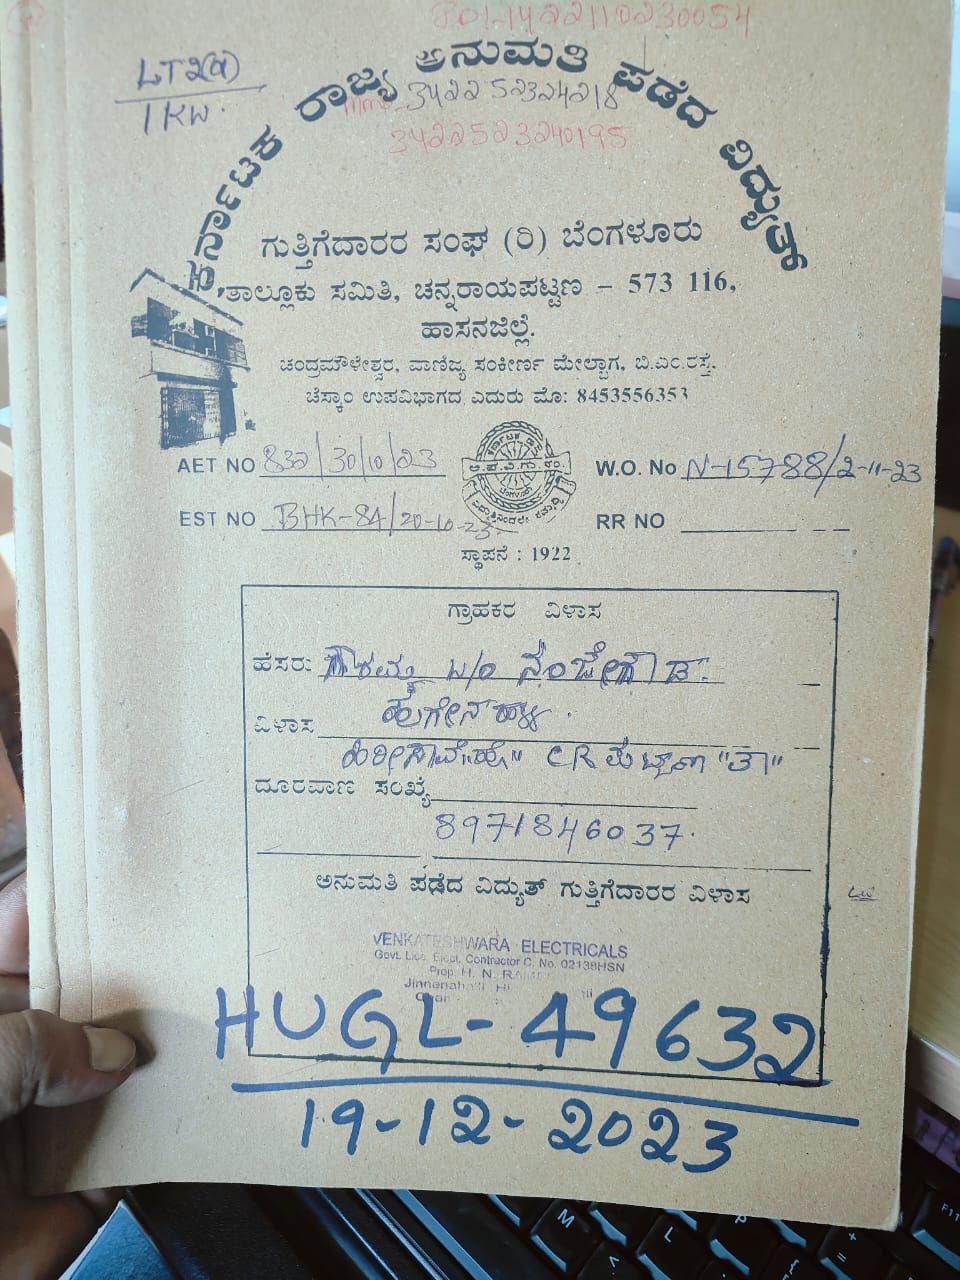 POI-1422110230054
LT2(a)
1 KW.
ಕರ್ನಾಟಕ ರಾಜ್ಯ ಅನುಮತಿ ಪಡೆದ ವಿದ್ಯುತ್
342252324218
3422523240195
ಗುತ್ತಿಗೆದಾರರ ಸಂಘ (ರಿ) ಬೆಂಗಳೂರು
ತಾಲ್ಲೂಕು ಸಮಿತಿ, ಚನ್ನರಾಯಪಟ್ಟಣ - 573 116,
ಹಾಸನಜಿಲ್ಲೆ.
ಚಂದ್ರಮೌಳೇಶ್ವರ, ವಾಣಿಜ್ಯ ಸಂಕೀರ್ಣ ಮೇಲ್ಭಾಗ, ಬಿ.ಎಂ.ರಸ್ತೆ.
ಚೆಸ್ಕಾಂ ಉಪವಿಭಾಗದ ಎದುರು ಮೊ: 8453556353
AET NO 832/30/10/23
W.O. No N-15788/2-11-23
EST NO BHK-84/20-10-23.
RR NO
ಸ್ಥಾಪನೆ : 1922
ಗ್ರಾಹಕರ ವಿಳಾಸ
ಹೆಸರು: ಗೌರಮ್ಮ W/O ನಂಜೇಗೌಡ.
ವಿಳಾಸ ಹುಗೇನಹಳ್ಳಿ.
ಹಿರೀಸಾವೆ"ಹೋ" CR ಪಟ್ಟಣ "ತಾ"
ದೂರವಾಣಿ ಸಂಖ್ಯೆ
8971846037.
ಅನುಮತಿ ಪಡೆದ ವಿದ್ಯುತ್ ಗುತ್ತಿಗೆದಾರರ ವಿಳಾಸ
VENKATESHWARA ELECTRICALS
Govt. Lice. Elect. Contractor C. No. 02138HSN
Prop. H. N.
HUGL-49632
19-12-2023